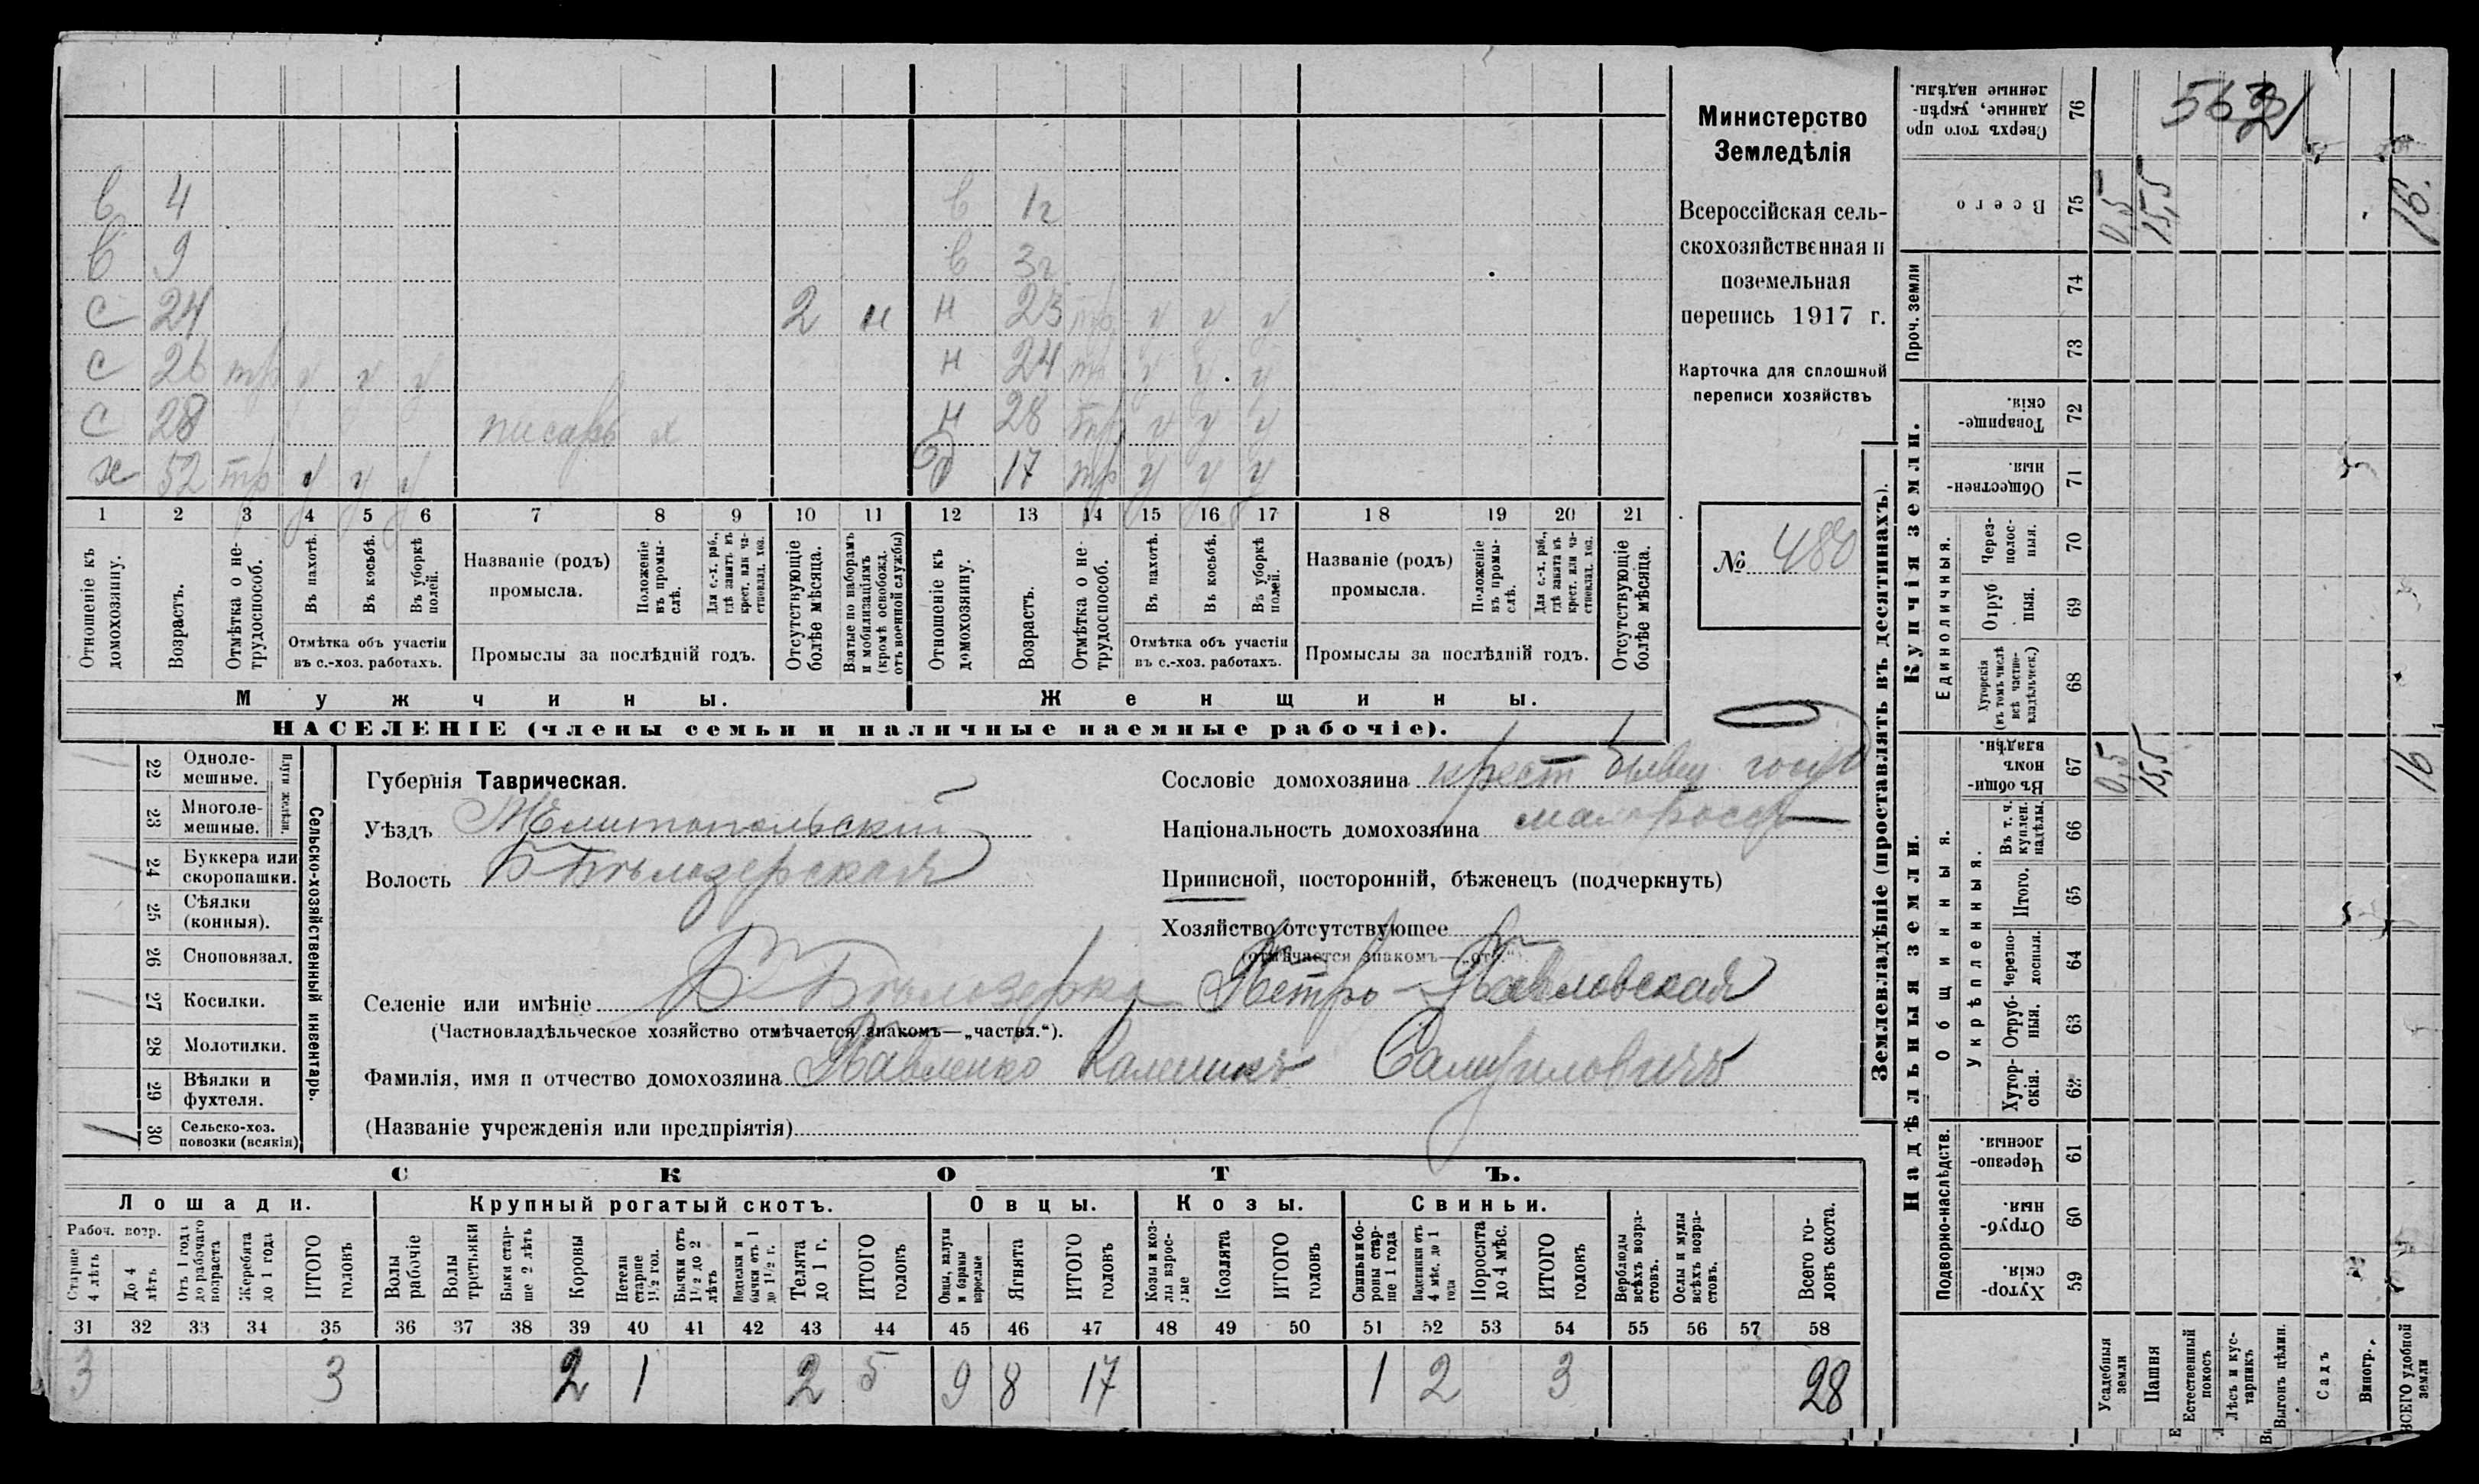 в 4 в 1г
в 9 в 3г
с 24 2 н н 23 тр у у у
с 26 тр у у у н 24 тр у у у
с 28 писарь х н 28 тр у у у
х 52 тр у у у д 17 тр у у у
1 2 3 4 5 6 7 8 9 10 11 12 13 14 15 16 17 18 19 20 21
Отношеніе къ домохозяину.
Возрастъ.
Отмѣтка о нетрудоспособ.
Въ пахотѣ.
Въ косьбѣ.
Въ уборкѣ полей.
Отмѣтка объ участіи
въ с.-хоз. работахъ.
Названіе (родъ)
промысла.
Положеніе въ промыслѣ.
Для с.-х. раб., гдѣ занятъ въ крест. или частновлад. хоз.
Промыслы за послѣдній годъ.
Отсутствующіе болѣе мѣсяца.
Взятые по наборамъ и мобилизаціямъ (кромѣ освобожд. отъ военной службы)
Отношеніе къ домохозяину.
Возрастъ.
Отмѣтка о нетрудоспособ.
Въ пахотѣ.
Въ косьбѣ.
Въ уборкѣ полей.
Отмѣтка объ участіи
въ с.-хоз. работахъ.
Названіе (родъ)
промысла.
Положеніе въ промыслѣ.
Для с.-х. раб., гдѣ занята въ крест. или частновлад. хоз.
Промыслы за послѣдній годъ.
Отсутствующіе болѣе мѣсяца.
Мужчины.
Женщины.
НАСЕЛЕНІЕ (члены семьи и наличные наемные рабочіе).
Министерство
Земледѣлія
Всероссійская сель-
скохозяйственная и
поземельная
перепись 1917 г.
Карточка для сплошной
переписи хозяйствъ
№ 480
Сельско-хозяйственный инвентарь.
Плуги желѣзн.
22 Одноле-
мешные.
23 Многоле-
мешные.
24 Буккера или
скоропашки.
25 Сѣялки
(конныя).
26 Сноповязал.
27 Косилки.
28 Молотилки.
29 Вѣялки и
фухтеля.
30 Сельско-хоз.
повозки (всякія)
Губернія Таврическая.
Уѣздъ Мелитопольскій
Волость Б Бѣлозерская
Сословіе домохозяина крест бывш госуд
Національность домохозяина малоросс
Приписной, посторонній, бѣженецъ (подчеркнуть)
Хозяйство отсутствующее
(отмѣчается знакомъ—„отс.“)
Селеніе или имѣніе Б Бѣлозерка Петро-Павловская
(Частновладѣльческое хозяйство отмѣчается знакомъ—„частвл.“).
Фамилія, имя и отчество домохозяина Павленко Калешикъ Самуиловичъ
(Названіе учрежденія или предпріятія)
СКОТЪ.
Лошади.
Крупный рогатый скотъ.
Овцы.
Козы.
Свиньи.
Рабоч. возр.
Старше 4 лѣтъ
До 4 лѣтъ
Отъ 1 года до рабочаго возраста
Жеребята до 1 года
ИТОГО головъ
Волы рабочіе
Волы третьяки
Быки старше 2 лѣтъ
Коровы
Нетели старше 1½ год.
Бычки отъ 1½ до 2 лѣтъ
Подтелки и бычки отъ 1 до 1½ г.
Телята до 1 г.
ИТОГО головъ
Овцы, валухи и бараны взрослые
Ягнята
ИТОГО головъ
Козы и козлы взрослые
Козлята
ИТОГО головъ
Свиньи и боровы старше 1 года
Подсвинки отъ 4 мѣс. до 1 года
Поросята до 4 мѣс.
ИТОГО головъ
Верблюды всѣхъ возрастовъ.
Ослы и мулы всѣхъ возрастовъ.
Всего головъ скота.
31 32 33 34 35 36 37 38 39 40 41 42 43 44 45 46 47 48 49 50 51 52 53 54 55 56 57 58
3 3 2 1 2 5 9 8 17 1 2 3 28
Землевладѣніе (проставлять въ десятинахъ).
Купчія земли.
Надѣльныя земли.
Сверхъ того проданные, укрѣпленные надѣлы. 76
Всего 75 0,5 15,5 16.
Проч. земли
74
73
Товарищескія. 72
Общественныя. 71
Единоличныя.
Черезполосныя. 70
Отрубныя. 69
Хуторскія (въ томъ числѣ всѣ частновладѣльческ.) 68
Общинныя.
Въ общинномъ владѣн. 67 0,5 15,5 16
Укрѣпленныя.
Въ т. ч. куплен. надѣлы. 66
Итого. 65
Черезполосныя. 64
Отрубныя. 63
Хуторскія. 62
Подворно-наслѣдств.
Черезполосныя. 61
Отрубныя. 60
Хуторскія. 59
Усадебныя земли
Пашня
Естественный покосъ
Лѣсъ и кустарникъ
Выгонъ цѣлин.
Садъ
Виногр.
ВСЕГО удобной земли